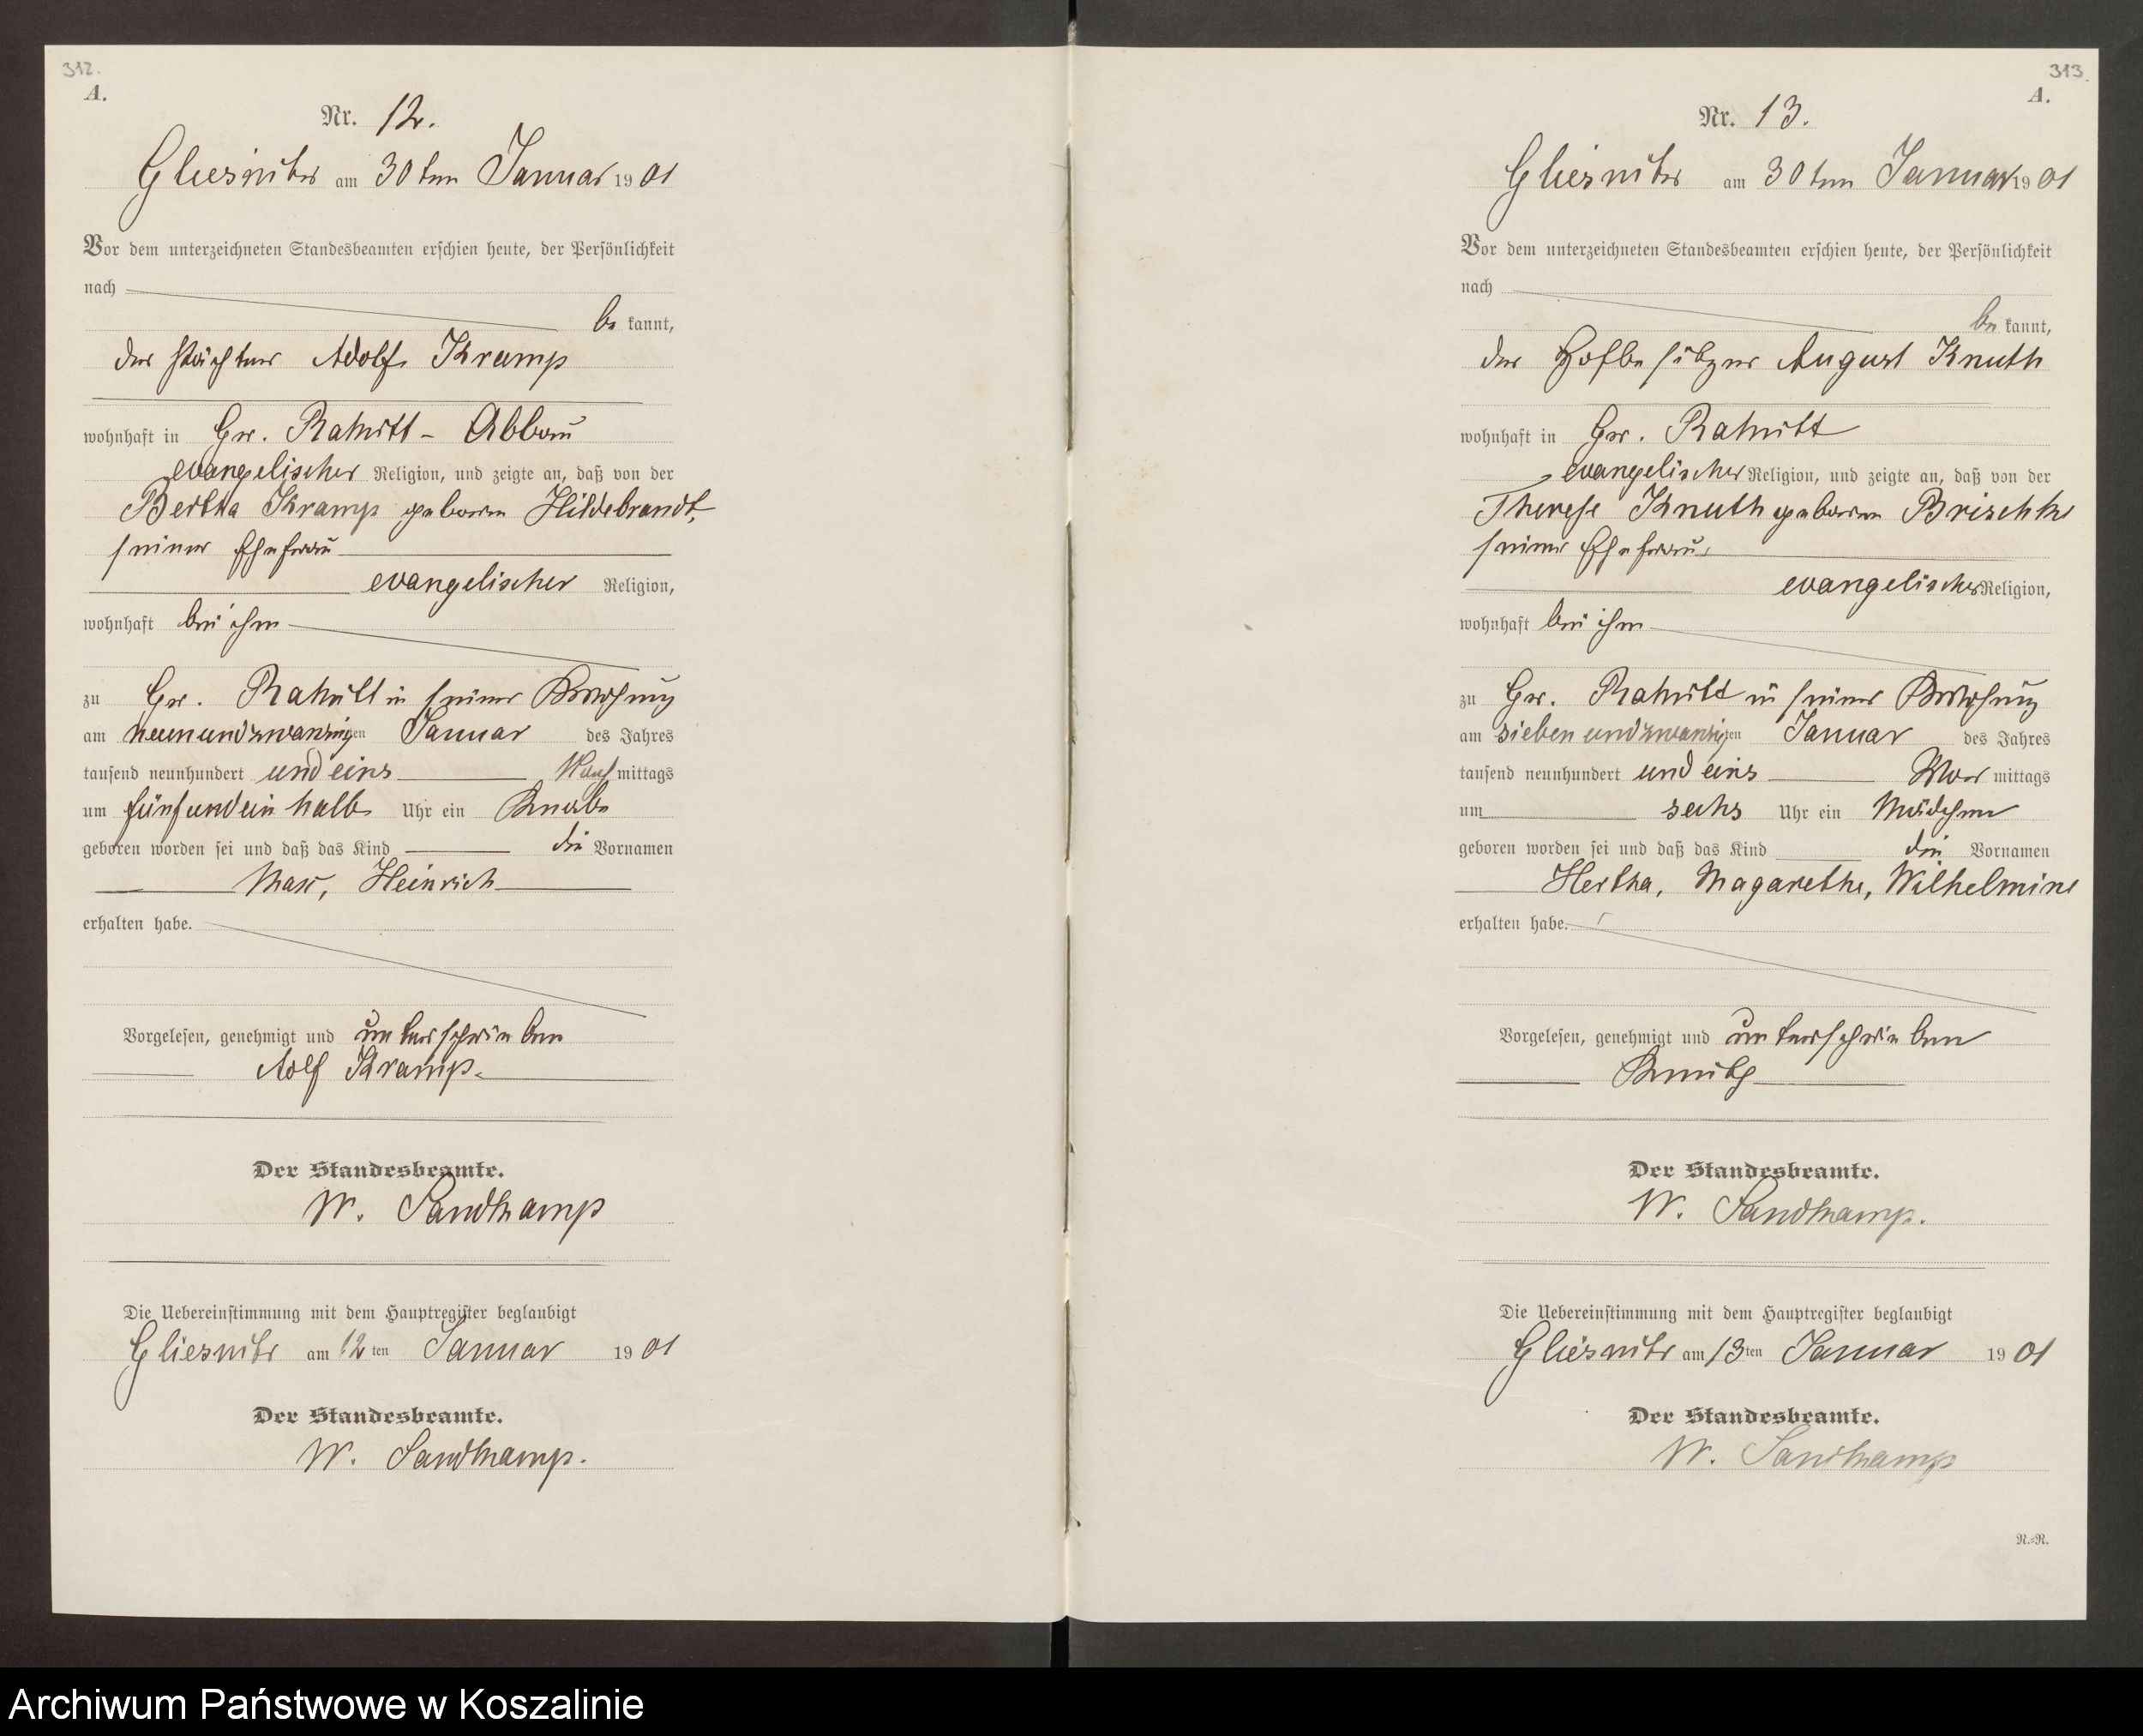 312.
A.
Nr. 12.
Gliesnitz am 30ten Januar 1901
Vor dem unterzeichneten Standesbeamten erschien heute, der Persönlichkeit
nach
be kannt,
der Pächter Adolf Kramp
wohnhaft in Gr. Rakitt - Abbau
evangelischer Religion, und zeigte an, daß von der
Bertha Kramp geboren Hildebrandt,
seiner Ehefrau
evangelischer Religion,
wohnhaft bei ihm
zu Gr. Rakitt in seiner Wohnung
am neunundzwanzigen Januar des Jahres
tausend neunhundert und eins Nach mittags
um fünfundein halb Uhr ein Knabe
geboren worden sei und daß das Kind die Vornamen
Max, Heinrich
erhalten habe.
Vorgelesen, genehmigt und unterschrieben
Adolf Kramp.
Der Standesbeamte.
W. Sandkamp
Die Uebereinstimmung mit dem Hauptregister beglaubigt
Gliesnitz am 12ten Januar 1901
Der Standesbeamte.
W. Sandkamp.
313.
A.
Nr. 13.
Gliesnitz am 30ten Januar 1901
Vor dem unterzeichneten Standesbeamten erschien heute, der Persönlichkeit
nach
be kannt,
der Hofbesitzer August Knuth
wohnhaft in Gr. Rakitt
evangelischer Religion, und zeigte an, daß von der
Therese Knuth geboren Brischke
seiner Ehefrau
evangelischer Religion,
wohnhaft bei ihm
zu Gr. Rakitt in seiner Wohnung
am siebenundzwanzigen Januar des Jahres
tausend neunhundert und eins Vor mittags
um sechs Uhr ein Mädchen
geboren worden sei und daß das Kind die Vornamen
Hertha, Magarethe, Wilhelmine
erhalten habe.
Vorgelesen, genehmigt und unterschrieben
Knuth
Der Standesbeamte.
W. Sandkamp.
Die Uebereinstimmung mit dem Hauptregister beglaubigt
Gliesnitz am 13ten Januar 1901
Der Standesbeamte.
W. Sandkamp
N.-R.
Archiwum Państwowe w Koszalinie